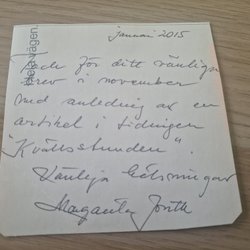 januari 2015
Tack för ditt vänliga
brev i november
med anledning av en
artikel i tidningen
"Kvällsstunden".
Vänliga Hälsningar
Margareta